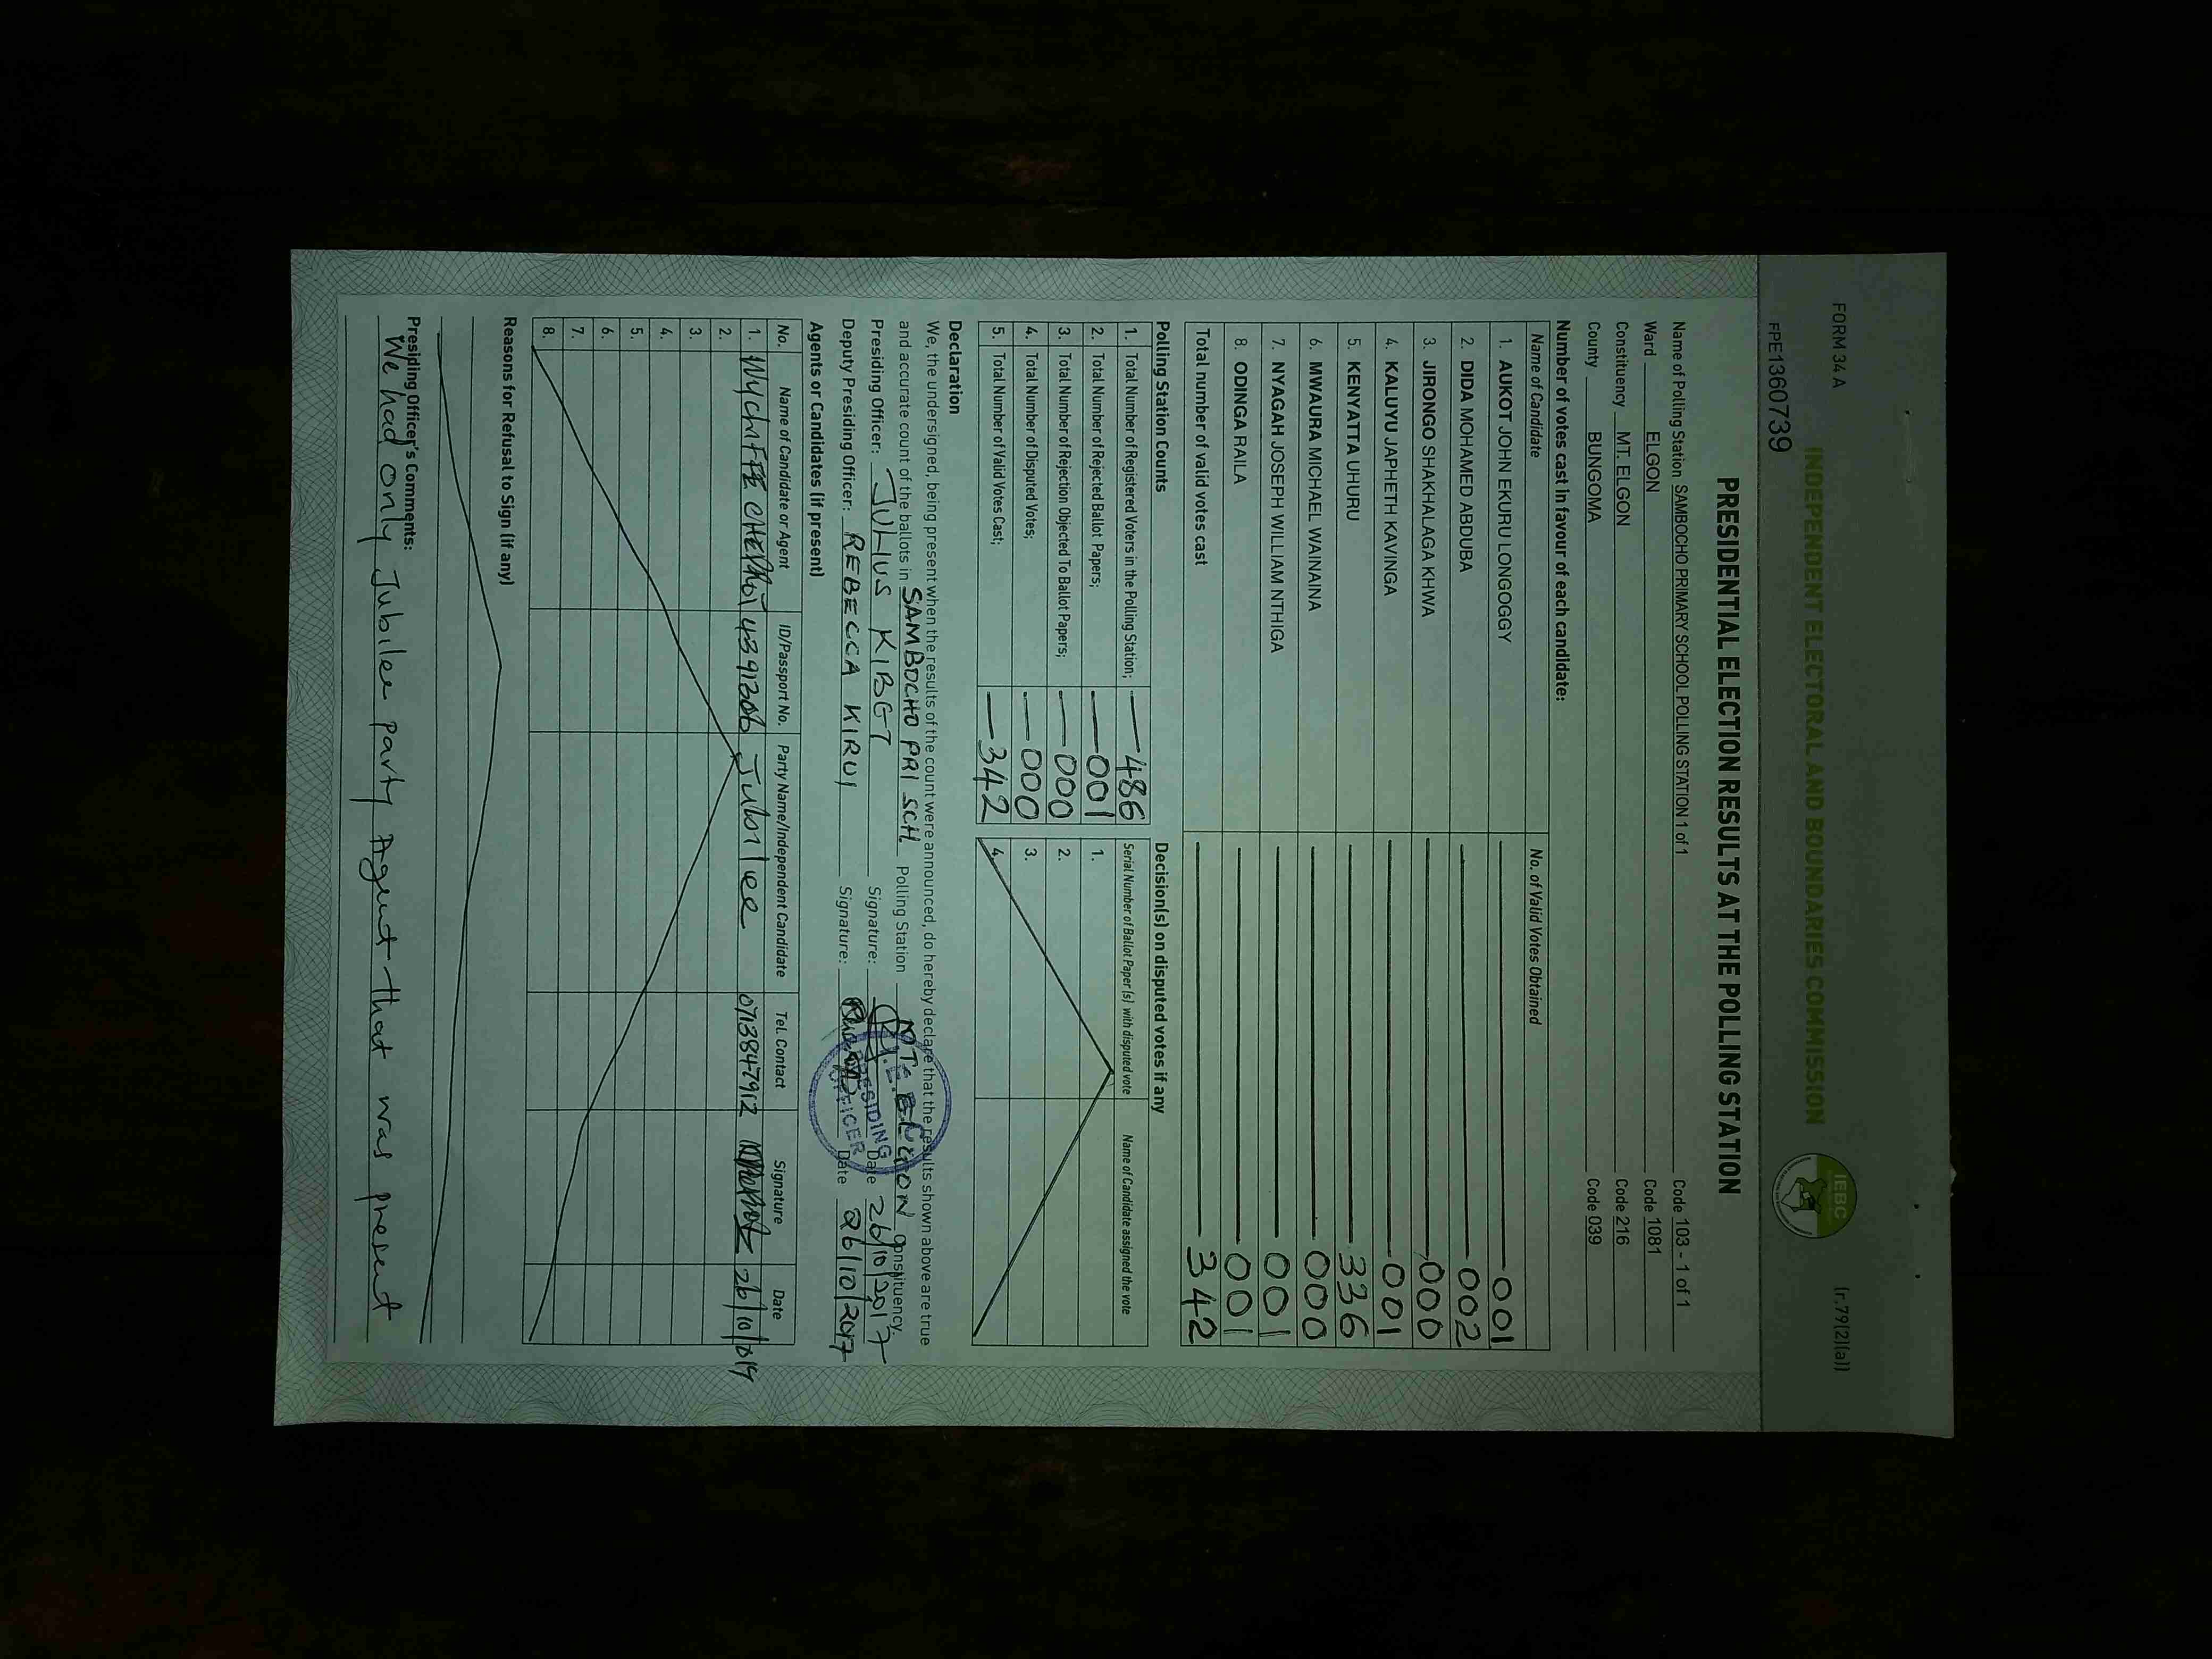 FORM 34 A
(r.79(2)(a))
INDEPENDENT ELECTORAL AND BOUNDARIES COMMISSION
IEBC
FPE1360739
PRESIDENTIAL ELECTION RESULTS AT THE POLLING STATION
Name of Polling Station SAMBOCHO PRIMARY SCHOOL POLLING STATION 1 of 1 Code 103 - 1 of 1
Ward ELGON Code 1081
Constituency MT. ELGON Code 216
County BUNGOMA Code 039
Number of votes cast in favour of each candidate:
Name of Candidate No. of Valid Votes Obtained
1. AUKOT JOHN EKURU LONGOGGY 001
2. DIDA MOHAMED ABDUBA 002
3. JIRONGO SHAKHALAGA KHWA 000
4. KALUYU JAPHETH KAVINGA 001
5. KENYATTA UHURU 336
6. MWAURA MICHAEL WAINAINA 000
7. NYAGAH JOSEPH WILLIAM NTHIGA 001
8. ODINGA RAILA 001
Total number of valid votes cast 342
Polling Station Counts
1. Total Number of Registered Voters in the Polling Station; 486
2. Total Number of Rejected Ballot Papers; 001
3. Total Number of Rejection Objected To Ballot Papers; 000
4. Total Number of Disputed Votes; 000
5. Total Number of Valid Votes Cast; 342
Decision(s) on disputed votes if any
Serial Number of Ballot Paper (s) with disputed vote Name of Candidate assigned the vote
1.
2.
3.
4.
Declaration
We, the undersigned, being present when the results of the count were announced, do hereby declare that the results shown above are true
and accurate count of the ballots in SAMBOCHO PRI SCH Polling Station MT. ELGON Constituency
Presiding Officer: JULIUS KIBET Signature: Date 26/10/2017
Deputy Presiding Officer: REBECCA KIRUI Signature: Date 26/10/2017
PRESIDING
OFFICER
Agents or Candidates (if present)
No. Name of Candidate or Agent ID/Passport No. Party Name/Independent Candidate Tel. Contact Signature Date
1. Jubilee 0713847912 26/10/
2.
3.
4.
5.
6.
7.
8.
Reasons for Refusal to Sign (if any)
Presiding Officer's Comments:
We had only Jubilee party Agent that was present